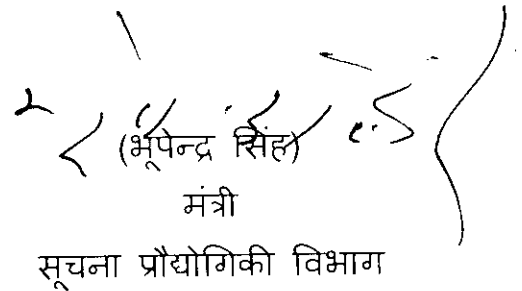 (भूपेन्द्र सिंह)
मंत्री
सूचना प्रौद्योगिकी विभाग